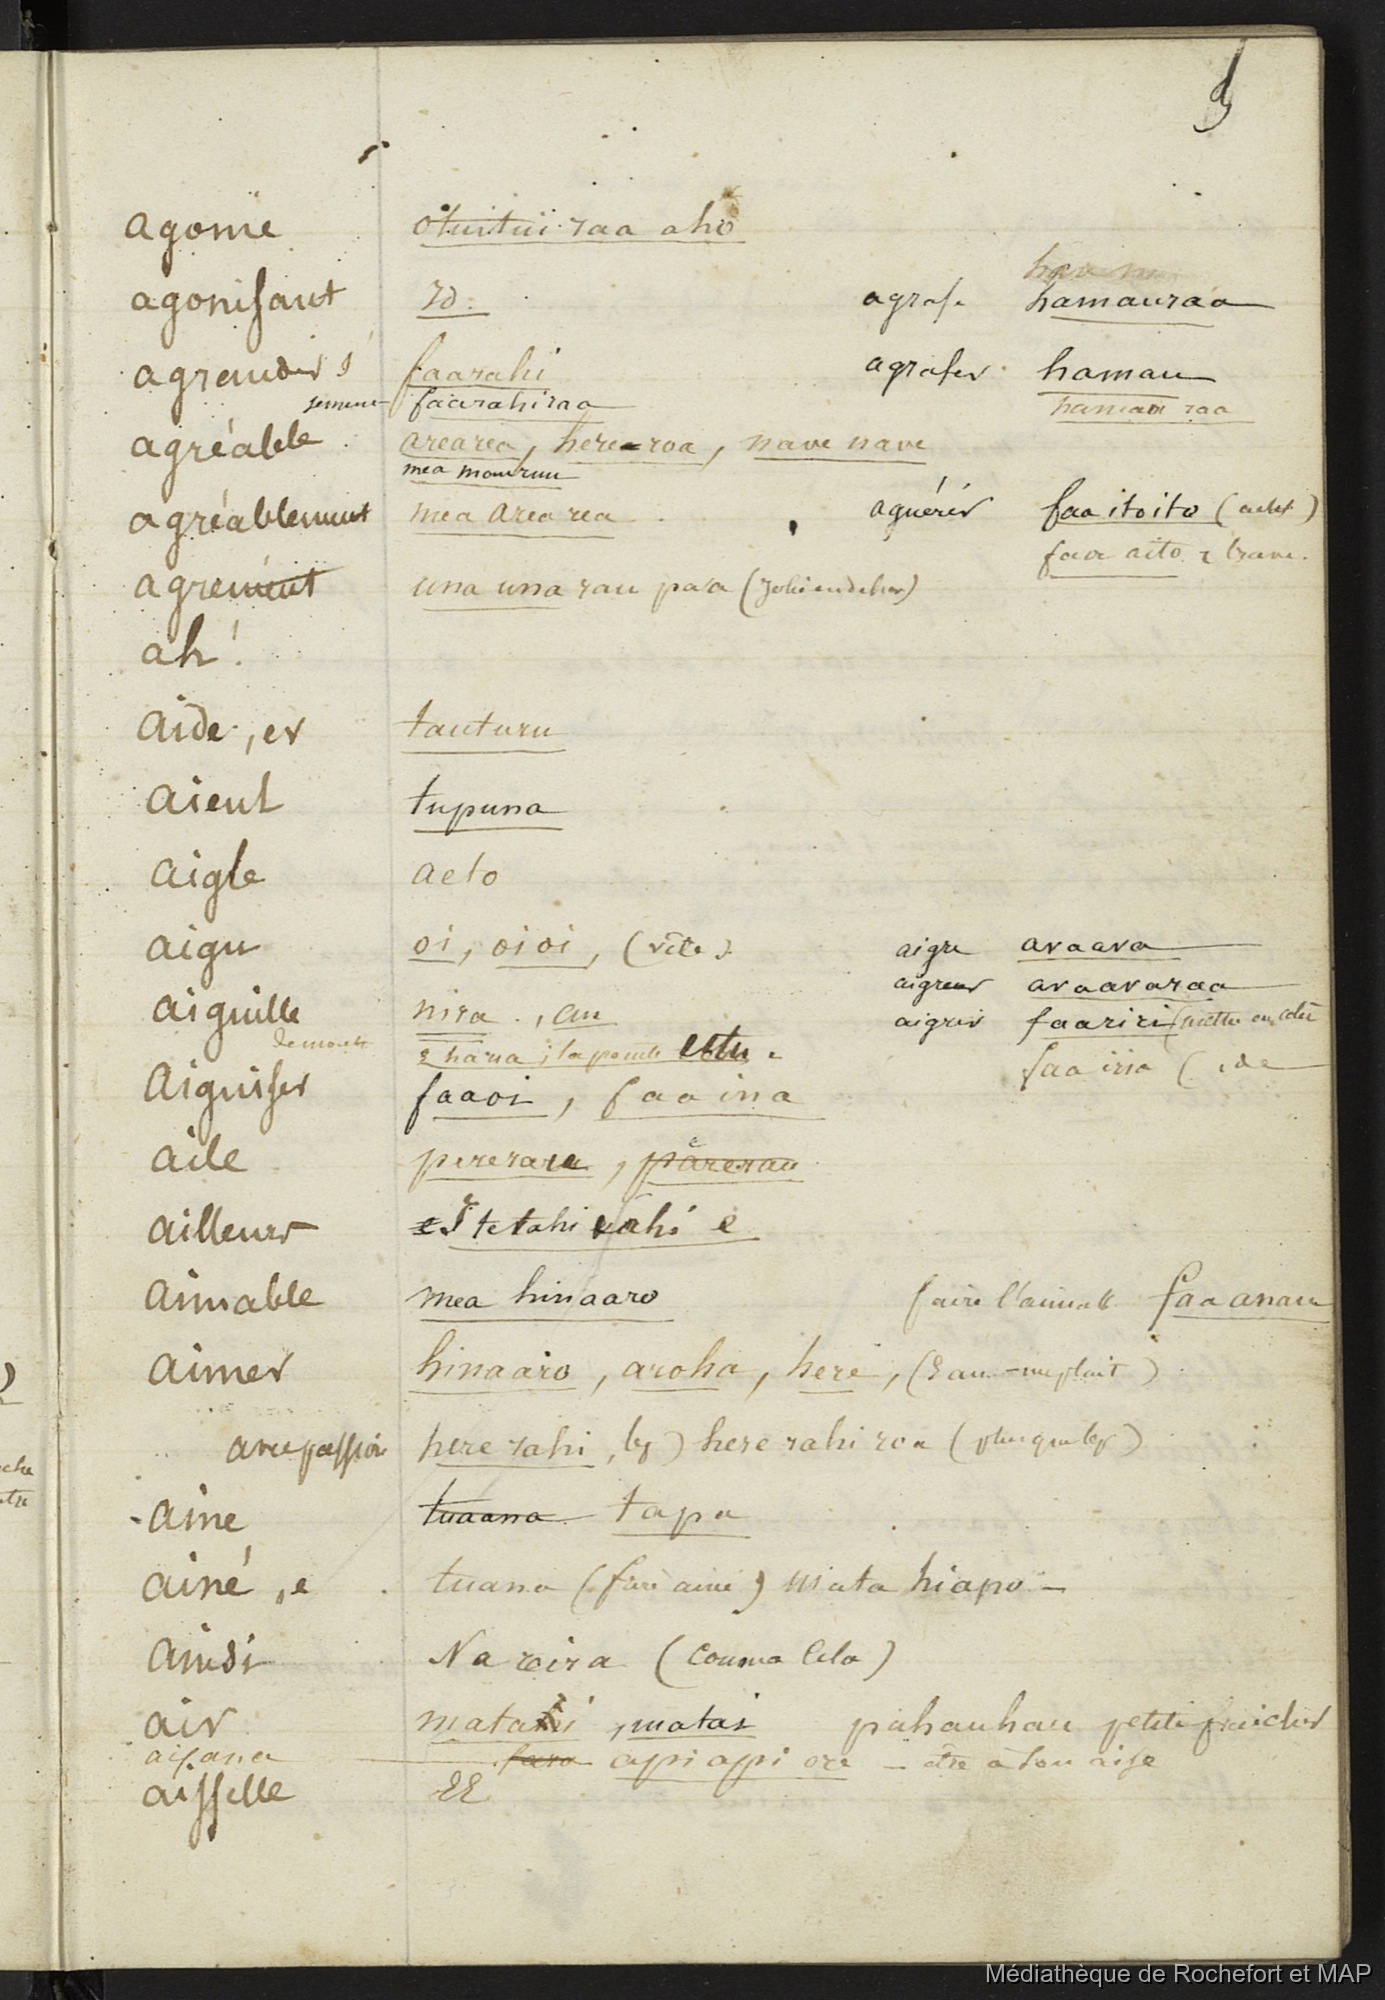 agonie otuituii raa aho
agonisant id. agrafe hamauraa
agrandir s' faarahi agrafer hamau
faarahiraa hamau raa
agréable arearea, here-roa, nave nave
mea mauruu
agréablement mea arearea . aguérir faaitoito (
faa aito brave.
agrément una una rau paa
ah!
aide, er tauturu
aieul tupuna
aigle aeto
aigu oi, oioi, (vîte) aigre avaava
aigreur avaavaraa
aiguille nira, au aigrir faariri (mettre en colère
faa iria ( ide
aiguiser faaoi, faaina
aile pererau, pârerau
ailleurs I te tahi vahi e
aimable mea hinaaro faire l'aimable faaanau
aimer hinaaro, aroha, here,
avec passion here rahi, hererahi roa
aine tuaana tapa
ainé, e tuana (frère ainé) matahiapo -
ainsi Na reira (comme cela)
air matahi, matai puhauhau petite fraicheur
faro apiapi ore - être à son aise
aisselle EE
Médiathèque de Rochefort et MAP